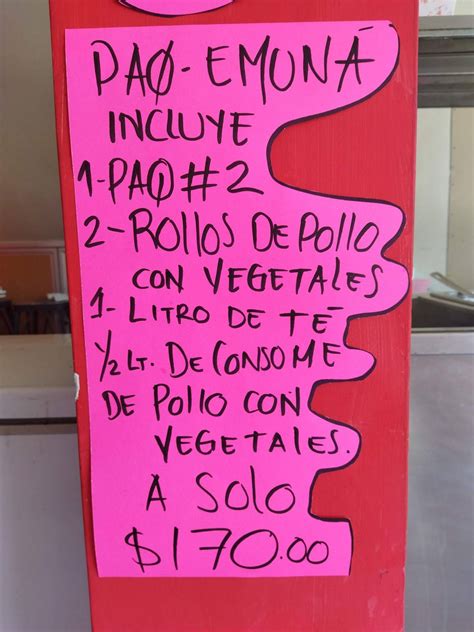 PAQ-EMUNÁ
INCLUYE
1-PAQ#2
2-ROLLOS DE POLLO
CON VEGETALES
1-LITRO DE TÉ
½ LT. DE CONSOME
DE POLLO CON
VEGETALES.
A SOLO
$170.00